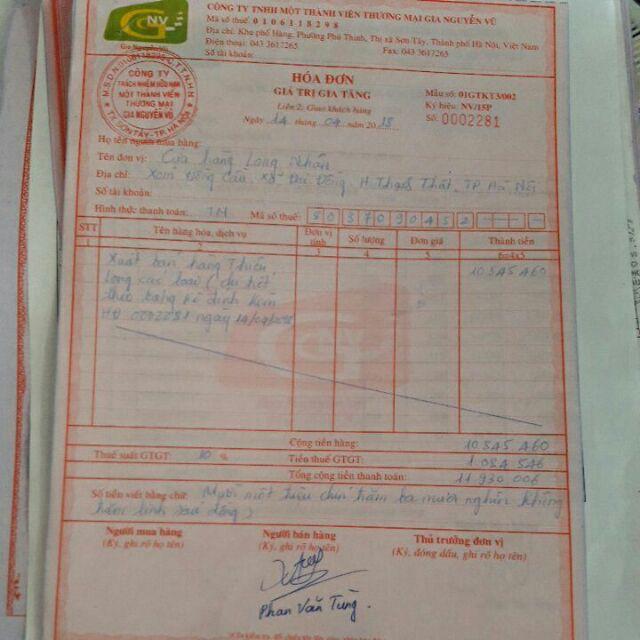 GNV
CÔNG TY TNHH MỘT THÀNH VIÊN THƯƠNG MẠI GIA NGUYÊN VŨ
Mã số thuế: 0 1 0 6 1 1 8 2 9 8
Địa chỉ: Khu phố Hàng, Phường Phú Thịnh, Thị xã Sơn Tây, Thành phố Hà Nội, Việt Nam
Điện thoại: 043 3617265 Fax: 043 3617265
Số tài khoản:
CÔNG TY
TRÁCH NHIỆM HỮU HẠN
MỘT THÀNH VIÊN
THƯƠNG MẠI
GIA NGUYÊN VŨ
HÓA ĐƠN
GIÁ TRỊ GIA TĂNG
Liên 2: Giao khách hàng
Ngày 14 tháng 04 năm 2018
Mẫu số: 01GTKT3/002
Ký hiệu: NV/15P
Số: 0002281
Họ tên người mua hàng:
Tên đơn vị: Cửa hàng Long Nhâm
Địa chỉ: Xóm Đồng Cầu, Xã Đại Đồng, H. Thạch Thất, TP Hà Nội
Số tài khoản:
Hình thức thanh toán: TM Mã số thuế: 8 0 3 7 0 9 0 4 5 2
STT Tên hàng hóa, dịch vụ Đơn vị tính Số lượng Đơn giá Thành tiền
1 2 3 4 5 6=4x5
Xuất bán hàng Thiên 10 845 460
Long các loại (chi tiết
theo bảng kê đính kèm
HĐ 0002281 ngày 14/04/2018
Cộng tiền hàng: 10 845 460
Thuế suất GTGT: 10 % Tiền thuế GTGT: 1 084 546
Tổng cộng tiền thanh toán: 11 930 006
Số tiền viết bằng chữ: Mười một triệu chín trăm ba mươi nghìn không
trăm linh sáu đồng
Người mua hàng Người bán hàng Thủ trưởng đơn vị
(Ký, ghi rõ họ tên) (Ký, ghi rõ họ tên) (Ký, đóng dấu, ghi rõ họ tên)
Phan Văn Tùng